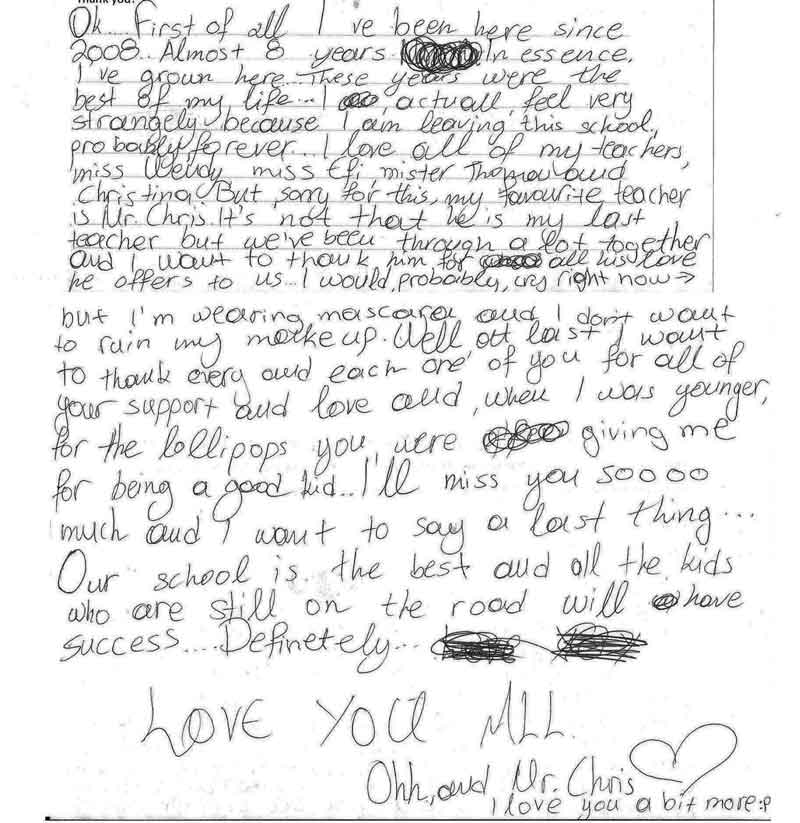 Thank you!
Ok.... First of all I've been here since
2008.. Almost 8 years In essence,
I've grown here.. These years were the
best of my life... I actuall feel very
strangely because I am leaving this school,
probably forever... I love all of my teachers,
miss Wendy miss Efi, mister Thomas and
Christina. But, sorry for this, my favourite teacher
is Mr. Chris. It's not that he is my last
teacher but we've been through a lot together
and I want to thank him for all his love
he offers to us... I would, probably, cry right now →
but I'm wearing mascara and I don't want
to ruin my make up. Well at last I want
to thank every and each one of you for all of
your support and love and, when I was younger,
for the lollipops you were giving me
for being a good kid.. I'll miss you soooo
much and I want to say a last thing...
Our school is the best and all the kids
who are still on the road will have
success.... Definetely...
LOVE YOU ALL.
Ohh, and Mr. Chris
I love you a bit more :P